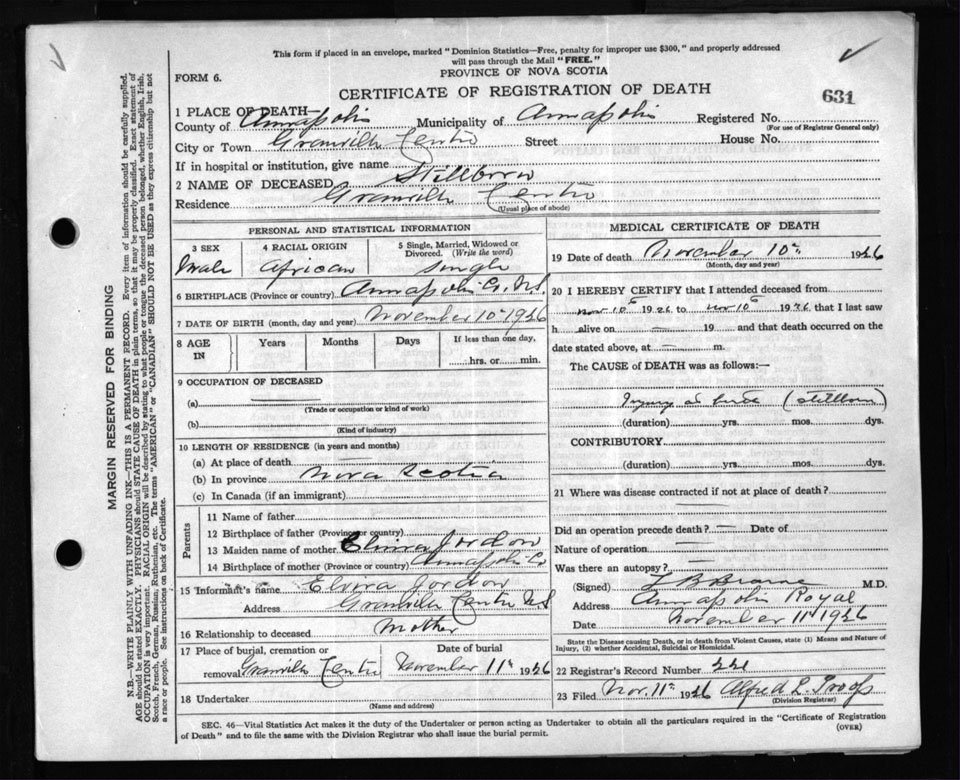 This form if placed in an envelope, marked "Dominion Statistics—Free, penalty for improper use $300," and properly addressed
will pass through the Mail "FREE."
FORM 6.
PROVINCE OF NOVA SCOTIA
CERTIFICATE OF REGISTRATION OF DEATH
631
1 PLACE OF DEATH
County of Annapolis Municipality of Annapolis Registered No.
(For use of Registrar General only)
City or Town Granville Centre Street House No.
If in hospital or institution, give name
2 NAME OF DECEASED Stillborn
Residence Granville Centre
(Usual place of abode)
PERSONAL AND STATISTICAL INFORMATION
3 SEX 4 RACIAL ORIGIN 5 Single, Married, Widowed or Divorced. (Write the word)
Male African Single
6 BIRTHPLACE (Province or country) Annapolis Co. N.S.
7 DATE OF BIRTH (month, day and year) November 10th 1926
8 AGE IN Years Months Days If less than one day,
hrs. or min.
9 OCCUPATION OF DECEASED
(a)
(Trade or occupation or kind of work)
(b)
(Kind of industry)
10 LENGTH OF RESIDENCE (in years and months)
(a) At place of death
(b) In province Nova Scotia
(c) In Canada (if an immigrant)
Parents
11 Name of father
12 Birthplace of father (Province or country)
13 Maiden name of mother Elvira Jordon
14 Birthplace of mother (Province or country) Annapolis Co
15 Informant's name Elvira Jordon
Address Granville Centre N.S
16 Relationship to deceased Mother
17 Place of burial, cremation or removal Granville Centre Date of burial November 11th 1926
18 Undertaker
(Name and address)
MEDICAL CERTIFICATE OF DEATH
19 Date of death November 10th 1926
(Month, day and year)
20 I HEREBY CERTIFY that I attended deceased from
Nov 10th 1926 to Nov 10th 1926 that I last saw
h alive on 19 and that death occurred on the
date stated above, at m.
The CAUSE of DEATH was as follows:—
Injury at birth (stillborn)
(duration) yrs. mos. dys.
CONTRIBUTORY
(duration) yrs. mos. dys.
21 Where was disease contracted if not at place of death?
Did an operation precede death? Date of
Nature of operation
Was there an autopsy?
(Signed) M.D.
Address Annapolis Royal
Date November 11th 1926
State the Disease causing Death, or in death from Violent Causes, state (1) Means and Nature of
Injury, (2) whether Accidental, Suicidal or Homicidal.
22 Registrar's Record Number 221
23 Filed Nov. 11th 1926 Alfred L. Troop
(Division Registrar)
SEC. 46—Vital Statistics Act makes it the duty of the Undertaker or person acting as Undertaker to obtain all the particulars required in the "Certificate of Registration
of Death" and to file the same with the Division Registrar who shall issue the burial permit.
(OVER)
MARGIN RESERVED FOR BINDING
N.B.—WRITE PLAINLY WITH UNFADING INK—THIS IS A PERMANENT RECORD. Every item of information should be carefully supplied.
AGE should be stated EXACTLY. PHYSICIANS should STATE CAUSE OF DEATH in plain terms, so that it may be properly classified. Exact statement of
OCCUPATION is very important. RACIAL ORIGIN will be described by stating to what people or tongue the deceased person belonged, whether English, Irish,
Scotch, French, German, Russian, Ruthenian, etc. The terms "AMERICAN" or "CANADIAN" SHOULD NOT BE USED as they express citizenship but not
a race or people. See instructions on back of Certificate.